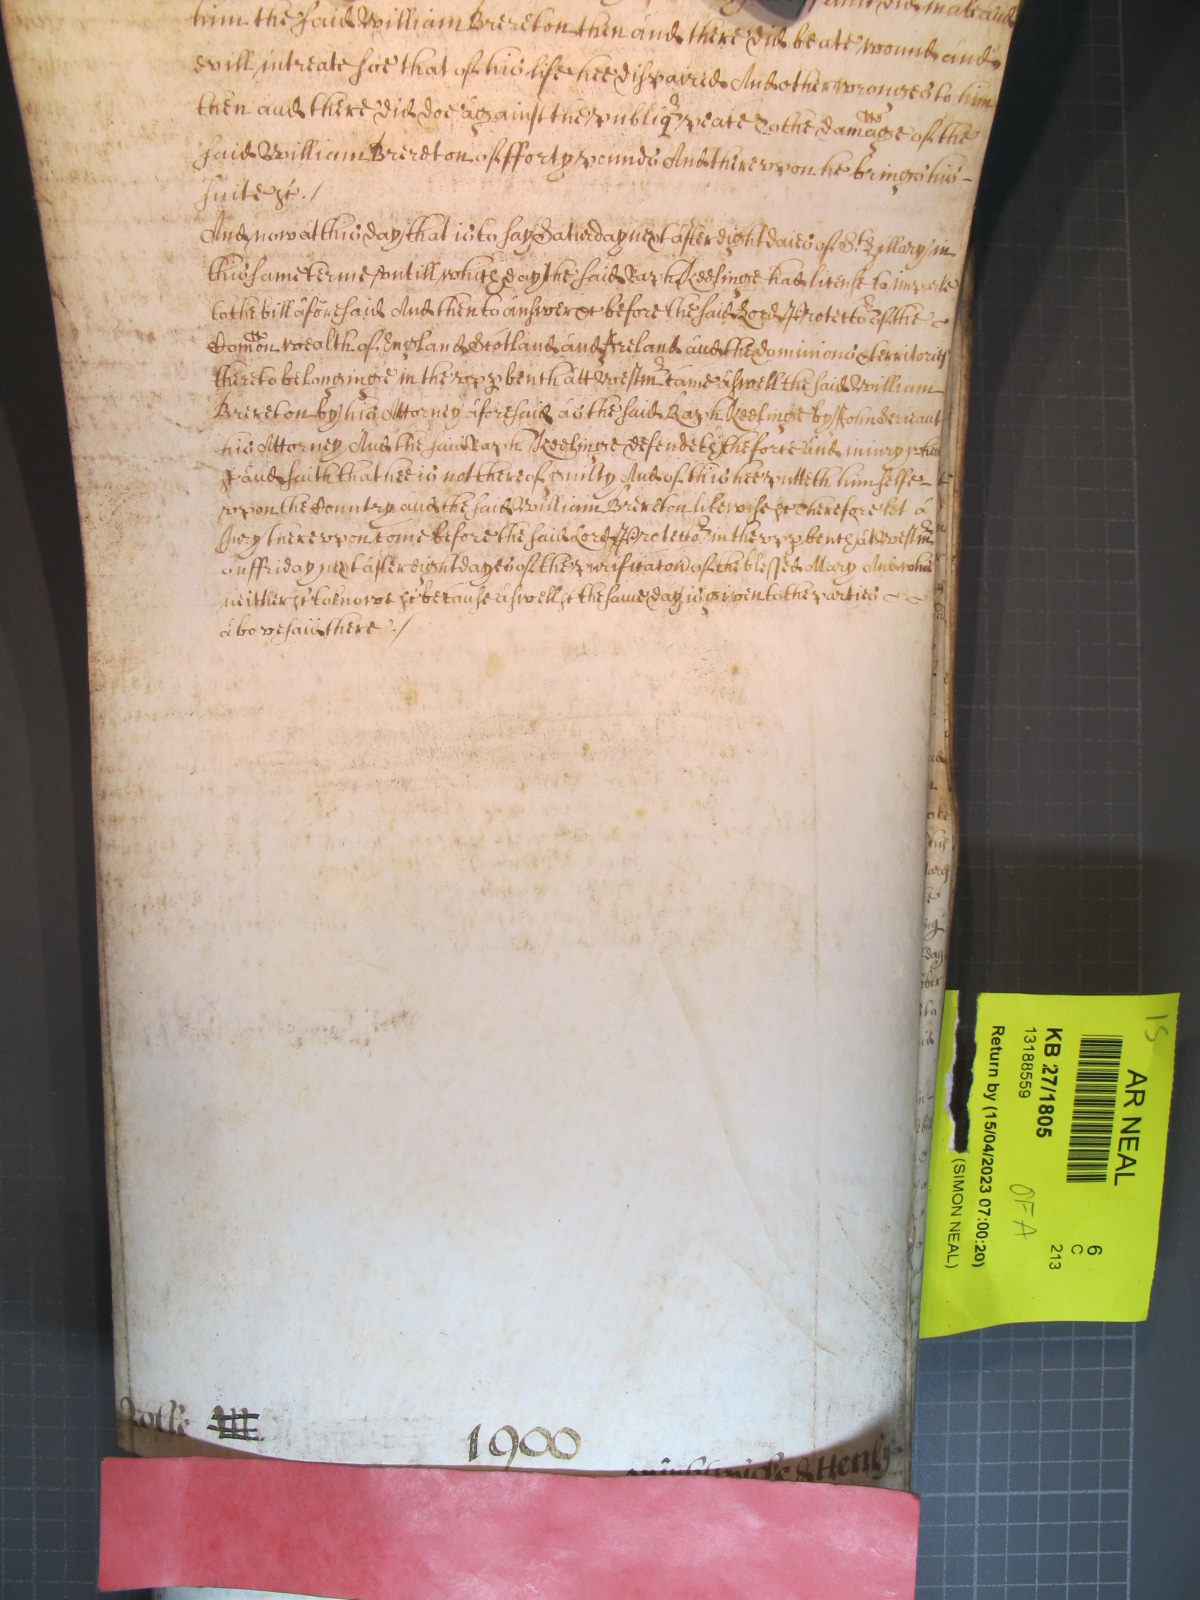 him the said William Brereton then and there did beate wound and
evill intreate soe that of his life hee dispaired And other wronges to him
then and there did doe against the publiq peace To the damage of the
said William Brereton of fforty pounds And therevpon he brings his
suite &c ./
And now at this day that is to say Saturday next after eight daies of St Hillary in
this same terme vntill which day the said Raph Keelinge had license to imparle
to the bill aforesaid And then to answer &c before the said Lord Protector of the
Comon wealth of England Scotland and Ireland and the dominions & territories
thereto belonginge in the vpp bench att Westmr came aswell the said William
Brereton by his Attorney aforesaid as the said Raph Keelinge by John
his Attorney And the said Raph Keelinge defendeth the force and iniury when
&c and saith that hee is not thereof guilty And of this hee putteth himselfe
vpon the Country and the said William Brereton likewise &c Therefore let a
Jury therevpon come before the said Lord Protector in the vpp bench at Westmr
on ffriday next after eight dayes of the purificaton of the blessed Mary And who
neither &c to knowe &c because aswell &c the same day is given to the parties
abovesaid there ./
1900
& Henly
AR NEAL
15
KB 27/1805
13188559
Return by (15/04/2023 07:00:20)
(SIMON NEAL)
OFA
6
C
213